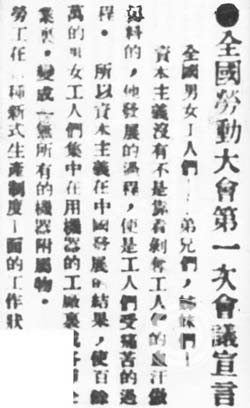 ●全國勞動大會第一次會議宣言
全國男女工人們——弟兄們，姊妹們——
資本主義沒有不是靠着剝奪工人們的血汗做
料的，他發展的過程，便是工人們受痛苦的過
程。所以資本主義在中國發展的結果，使百餘
萬的男女工人們集中在用機器的工廠裏
業裏，變成一無所有的機器附屬物。
勞工在一種新式生產制度下面的工作狀